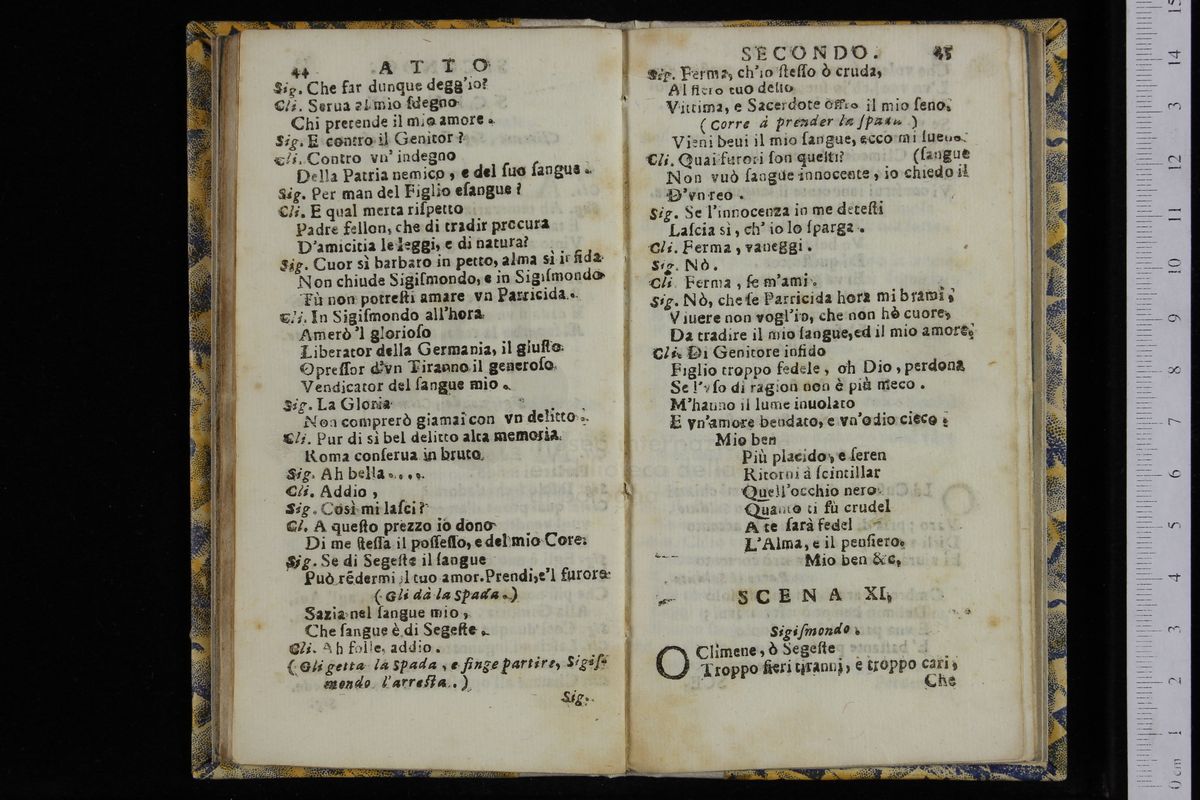 44 ATTO
Sig. Che far dunque degg'io?
Cli. Serua al mio sdegno
Chi pretende il mio amore.
Sig. E contro il Genitor?
Cli. Contro vn' indegno
Della Patria nemico, e del suo sangue.
Sig. Per man del Figlio esangue?
Cli. E qual merta rispetto
Padre fellon, che di tradir procura
D'amicitia le leggi, e di natura?
Sig. Cuor sì barbaro in petto, alma sì infida
Non chiude Sigismondo, e in Sigismondo
Tù non potresti amare vn Parricida.
Cli. In Sigismondo all'hora
Amerò 'l glorioso
Liberator della Germania, il giusto
Opressor d'vn Tiranno il generoso
Vendicator del sangue mio.
Sig. La Gloria
Non comprerò giamai con vn delitto.
Cli. Pur di sì bel delitto alta memoria
Roma conserua in bruto.
Sig. Ah bella....
Cli. Addio,
Sig. Così mi lasci?
Cl. A questo prezzo io dono
Di me stessa il possesso, e del mio Core.
Sig. Se di Segeste il sangue
Può rēdermi il tuo amor. Prendi, e'l furore
(Gli dà la Spada.)
Sazia nel sangue mio,
Che sangue è di Segeste.
Cli. Ah folle, addio.
(Gli getta la Spada, e finge partire, Sigis-
mondo l'arresta.)
Sig.
SECONDO. 45
Sig. Ferma, ch'io stesso ò cruda,
Al fiero tuo desio
Vittima, e Sacerdote offro il mio seno.
(Corre à prender la spada)
Vieni beui il mio sangue, ecco mi sueno.
Cli. Quai furori son questi? (sangue
Non vuò sangue innocente, io chiedo il
D'vn reo.
Sig. Se l'innocenza in me detesti
Lascia sì, ch'io lo sparga.
Cli. Ferma, vaneggi.
Sig. Nò.
Cli. Ferma, se m'ami.
Sig. Nò, che se Parricida hora mi brami,
Viuere non vogl'io, che non hò cuore,
Da tradire il mio sangue, ed il mio amore.
Cli. Di Genitore infido
Figlio troppo fedele, oh Dio, perdona
Se l'vso di ragion non è più meco.
M'hanno il lume inuolato
E vn'amore bendato, e vn'odio cieco.
Mio ben
Più placido, e seren
Ritorni à scintillar
Quell'occhio nero
Quanto ti fù crudel
A te sarà fedel
L'Alma, e il pensiero.
Mio ben &c.
SCENA XI.
Sigismondo.
O Climene, ò Segeste
Troppo fieri tiranni, e troppo cari,
Che